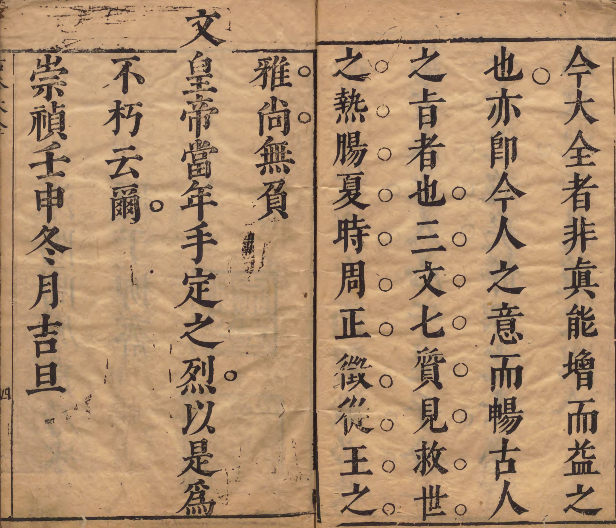 今大全者非眞能增而益之
也亦卽今人之意而暢古人
之旨者也三文七質見救世
之熱腸夏時周正徵從王之
雅尚無負
文皇帝當年手定之烈以是爲
不朽云爾
崇禎壬申冬月吉旦
四